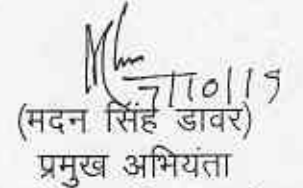 7/10/19
(मदन सिंह डावर)
प्रमुख अभियंता